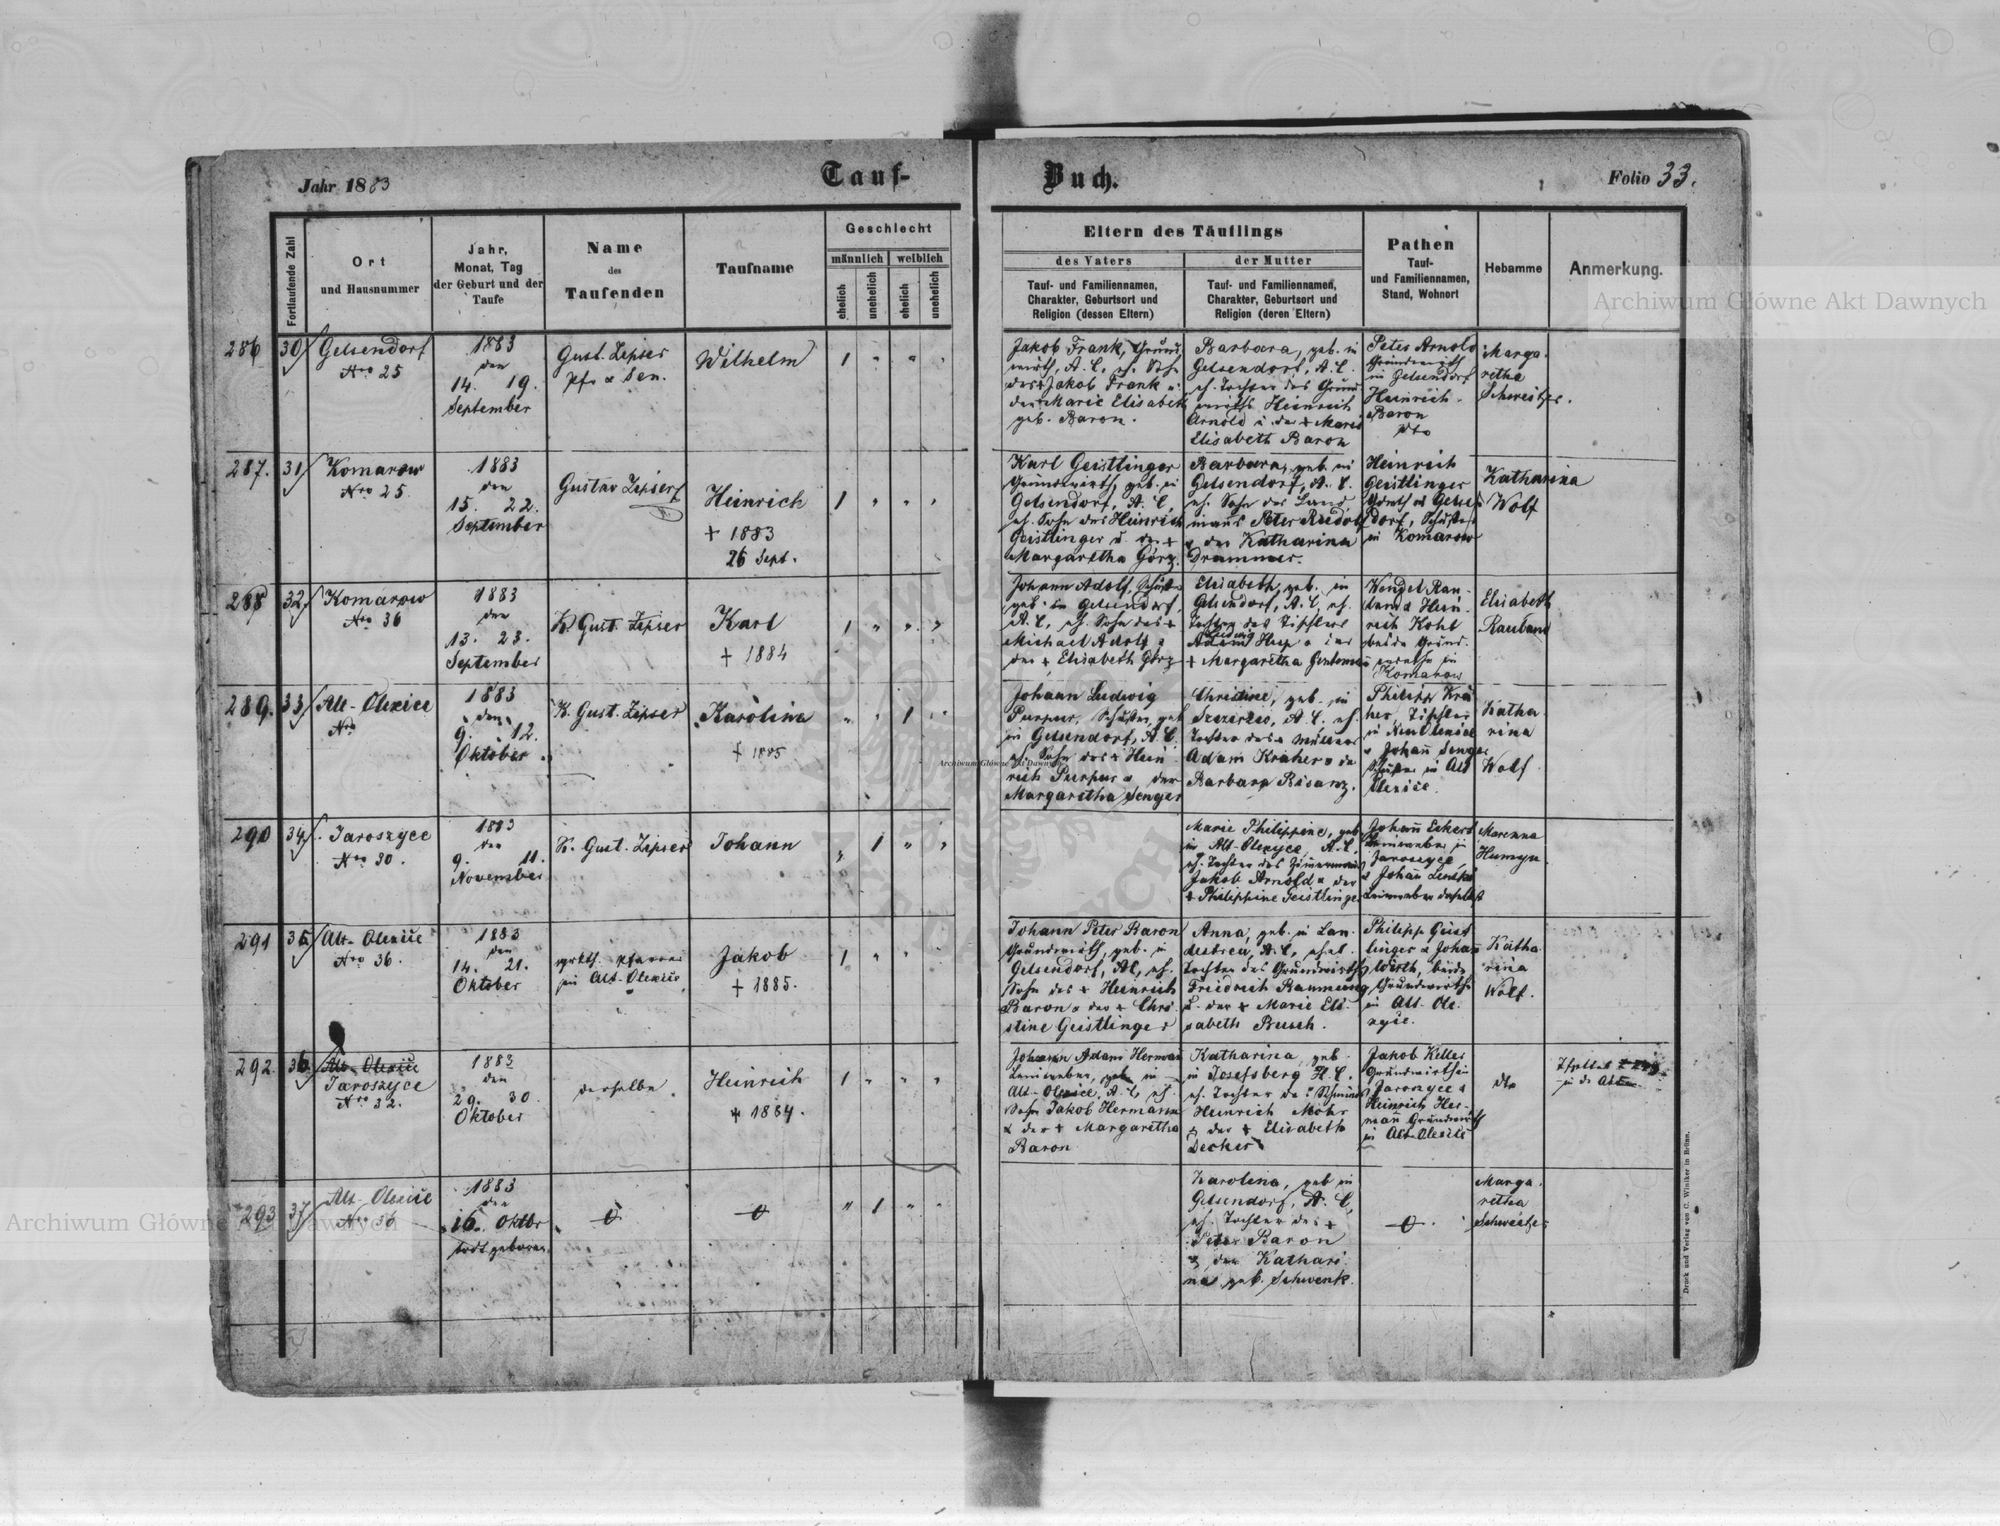 Jahr 1883
Tauf-
Buch.
Folio 33.
Fortlaufende Zahl
Ort
und Hausnummer
Jahr,
Monat, Tag
der Geburt und der
Taufe
Name
des
Taufenden
Taufname
Geschlecht
männlich
weiblich
ehelich
unehelich
ehelich
unehelich
Eltern des Täuflings
des Vaters
der Mutter
Tauf- und Familiennamen,
Charakter, Geburtsort und
Religion (dessen Eltern)
Tauf- und Familiennamen,
Charakter, Geburtsort und
Religion (deren Eltern)
Pathen
Tauf-
und Familiennamen,
Stand, Wohnort
Hebamme
Anmerkung.
286
30
Gelsendorf
Nro 25
1883
den
14. 19.
September
Gust. Zipser
Pfr & Sen.
Wilhelm
1 " " "
Jakob Frank, Grund
wirth, A. C., eh. Sohn
des + Jakob Frank u.
der Marie Elisabeth
geb. Baron.
Barbara, geb. in
Gelsendorf, A. C.
eh. Tochter des Grund
wirths Heinrich
Arnold u. der + Marie
Elisabeth Baron
Peter Arnold
Grundwirth
in Gelsendorf
Heinrich
Baron
dto
Marga
retha
Schweitzer.
287.
31
Komarow
Nro 25
1883
den
15. 22.
September
Gustav Zipser
Heinrich
+ 1883
26 Sept.
1 " " "
Karl Geistlinger
Grundwirth, geb. in
Gelsendorf, A. C.,
eh. Sohn des Heinrich
Geistlinger u. der +
Margaretha Görz.
Barbara, geb. in
Gelsendorf, A. C.
eh. Sohn des Land
manns Peter Rudolf
& der Katharina
Drammer.
Heinrich
Geistlinger
Gelsen
dorf, Schuster
in Komarow
Katharina
Wolf
288
32
Komarow
Nro 36
1883
den
13. 23.
September
K. Gust. Zipser
Karl
+ 1884
1 " " "
Johann Adolf, Schuster
geb. in Gelsendorf,
A. C., eh. Sohn des +
Michael Adolf &
der + Elisabeth Görz
Elisabeth, geb. in
Gelsendorf, A. C, eh.
Tochter des Tischlers
Ludwig
Hup & der
+ Margaretha
Wendel Rau
band & Hein
rich Kohl
beide Grund
wirthe in
Komarow
Elisabeth
Rauband
289.
33
Alt-Olexice
Nro
1883
den
9. 12.
Oktober
K. Gust. Zipser
Karolina
+ 1885
" " 1 "
Johann Ludwig
Purpur, Schuster, geb
in Gelsendorf, A. C.
eh. Sohn des + Hein
rich Purpur & der
Margaretha Senger
Christine, geb. in
A. C. eh.
Tochter des + Müllers
Adam Kraher & der
Barbara Bisanz.
Philipp Kra
her, Tischler
in Neu Olexice
& Johann Senger
Schuster in Alt
Olexice.
Katha
rina
Wolf
290
34
Jaroszyce
Nro 30.
1883
den
9. 11.
November
K. Gust. Zipser
Johann
" 1 " "
Marie Philippine, geb
in Alt-Olexyce, A. C.
eh. Tochter des Zimmermanns
Jakob Arnold & der
+ Philippine Geistlinger
Johann Eckert
Leinweber in
Jaroszyce,
& Johann
Leinweber daselbst
Marenna
Humyn.
291
35
Alt-Olexice
Nro 36.
1883
den
14. 21.
Oktober
Pfarrer
in Alt-Olexice
Jakob
+ 1885.
1 " "
Johann Peter Baron
Grundwirth, geb. in
Gelsendorf, AC, eh.
Sohn des + Heinrich
Baron & der + Chri
stine Geistlinger
Anna, geb. in Lan
destreu, A. C., ehel.
Tochter des Grundwirths
Friedrich Baumung
u. der + Marie Eli
sabeth Busch.
Philipp Geist
linger & Johann
Wirth, beide
Grundwirthe
in Alt-Ole
xyce.
Katha
rina
Wolf.
292.
36
Alt-Olexice
Jaroszyce
Nro 32.
1883
den
29. 30.
Oktober
derselbe
Heinrich
+ 1884.
1 " " "
Johann Adam Herman
Leinweber, geb in
Alt-Olexice, A. C., eh.
Sohn Jakob Hermann
& der + Margaretha
Baron
Katharina, geb.
in Josefsberg H. C.
eh. Tochter des Schmieds
Heinrich Mohr
& der + Elisabeth
Decker
Jakob Keller
Grundwirth in
Jaroszyce &
Heinrich Her-
mann Grundwirth
in Alt-Olexice
dto
293
37
Alt-Olexice
Nro 36
1883
den
16. Oktbr
todt geboren.
" 1 " "
Karolina, geb in
Gelsendorf, A. C,
eh. Tochter des +
Peter Baron
& der Kathari
na geb. Schwenk.
Marga
retha
Schweitzer
Druck und Verlag von C. Winiker in Brünn.
Archiwum Główne Akt Dawnych
Archiwum Główne Akt Dawnych
Archiwum Główne Akt Dawnych